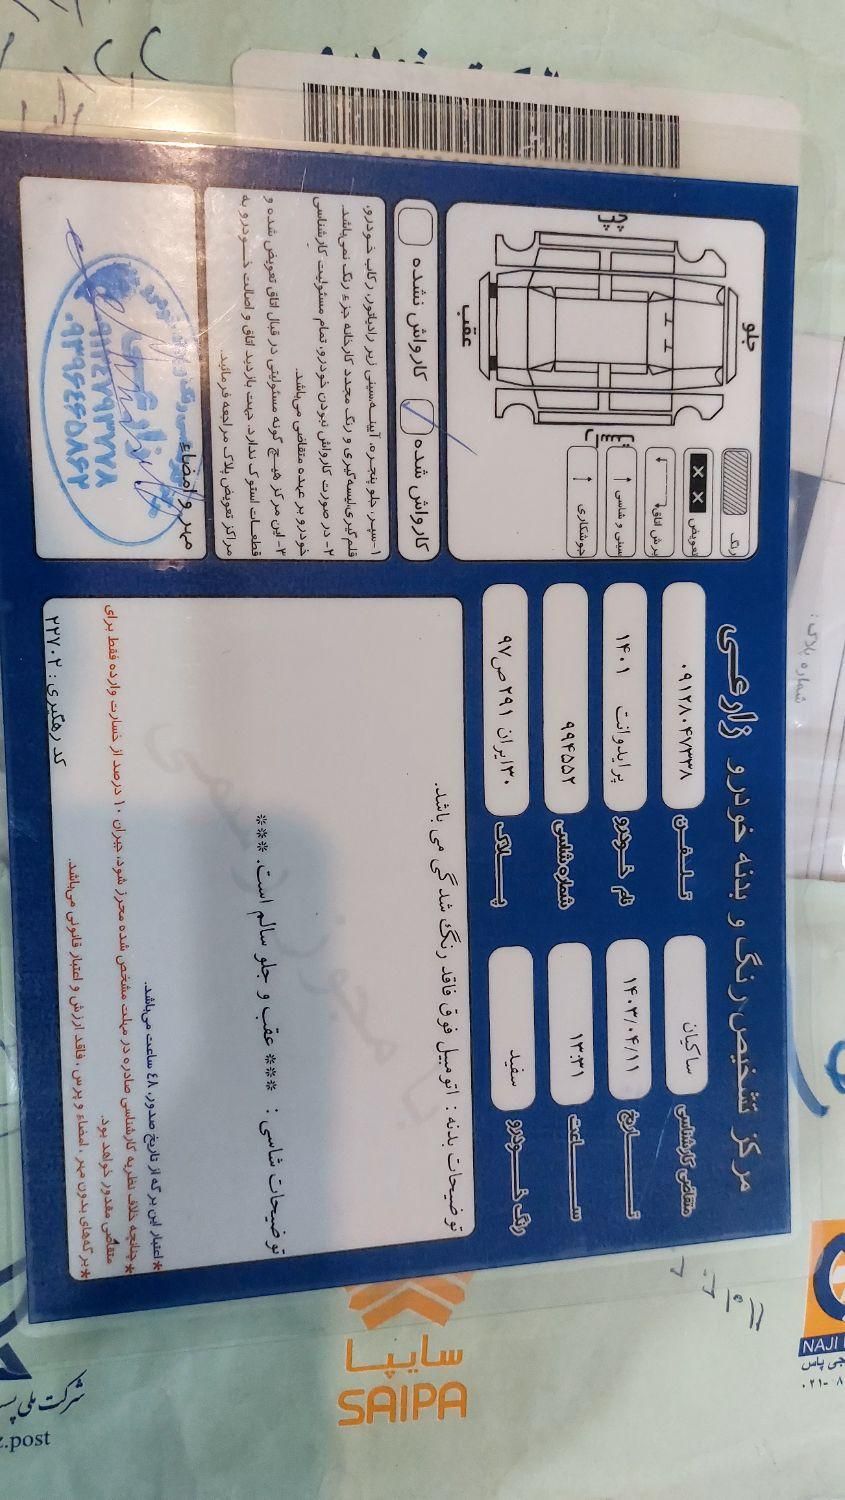 مرکز تشخیص رنگ و بدنه خودرو زارعی
متقاضی کارشناسی ساکیان
تلفن ۰۹۱۲۸۰۴۷۳۳۸
تاریخ ۱۴۰۳/۰۴/۱۱
نام خودرو پرایدوانت ۱۴۰۱
ساعت ۱۳:۳۱
شماره شاسی ۹۹۴۵۵۲
رنگ خودرو سفید
پلاک ۳۰ایران ۲۹۱ص۹۷
توضیحات بدنه : اتومبیل فوق فاقد رنگ شدگی می باشد.
توضیحات شاسی : *** عقب و جلو سالم است. ***
*اعتبار این برگه از تاریخ صدور، ٤٨ ساعت می‌باشد.
*چنانچه خلاف نظریه کارشناسی صادره در مهلت مشخص شده محرز شود، جبران ۱۰ درصد از خسارت وارده فقط برای
متقاضی مقدور خواهد بود.
*برگه‌های بدون مهر ، امضاء و پرس ، فاقد ارزش و اعتبار قانونی می‌باشد.
کد رهگیری : ۲۲۷۰۲
جلو
عقب
چپ
راست
رنگ
تعویض
برش اتاق
سینی و شاسی
جوشکاری
کارواش شده
کارواش نشده
۱-سپر، جلو پنجره، آیینه،سینی زیر رادیاتور، رکاب خودرو،
قلم‌گیری،لیسه‌گیری و رنگ مجدد کارخانه جزء رنگ نمی‌باشد.
۲- در صورت کارواش نبودن خودرو، تمام مسئولیت کارشناسی
خودرو بر عهده متقاضی می‌باشد.
۳-این مرکز هیچ گونه مسئولیتی در قبال اتاق تعویض شده و
قطعات استوک ندارد. جهت بازدید اتاق و اصالت خودرو به
مراکز تعویض پلاک مراجعه فرمائید.
مهر و امضاء
سایپا
SAIPA
NAJI
شرکت ملی پس
z.post
شماره پلاک :